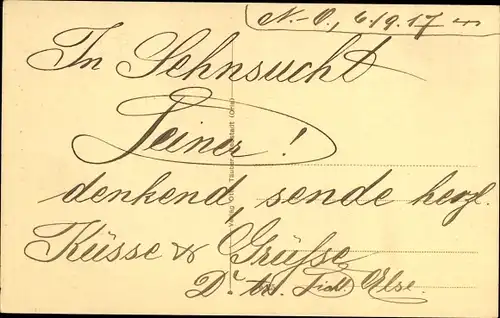 N.-O., 6/9.17
In Sehnsucht
Deiner!
denkend, sende herzl.
Küsse & Grüsse
Dr. tr. Else.
Verlag Otto